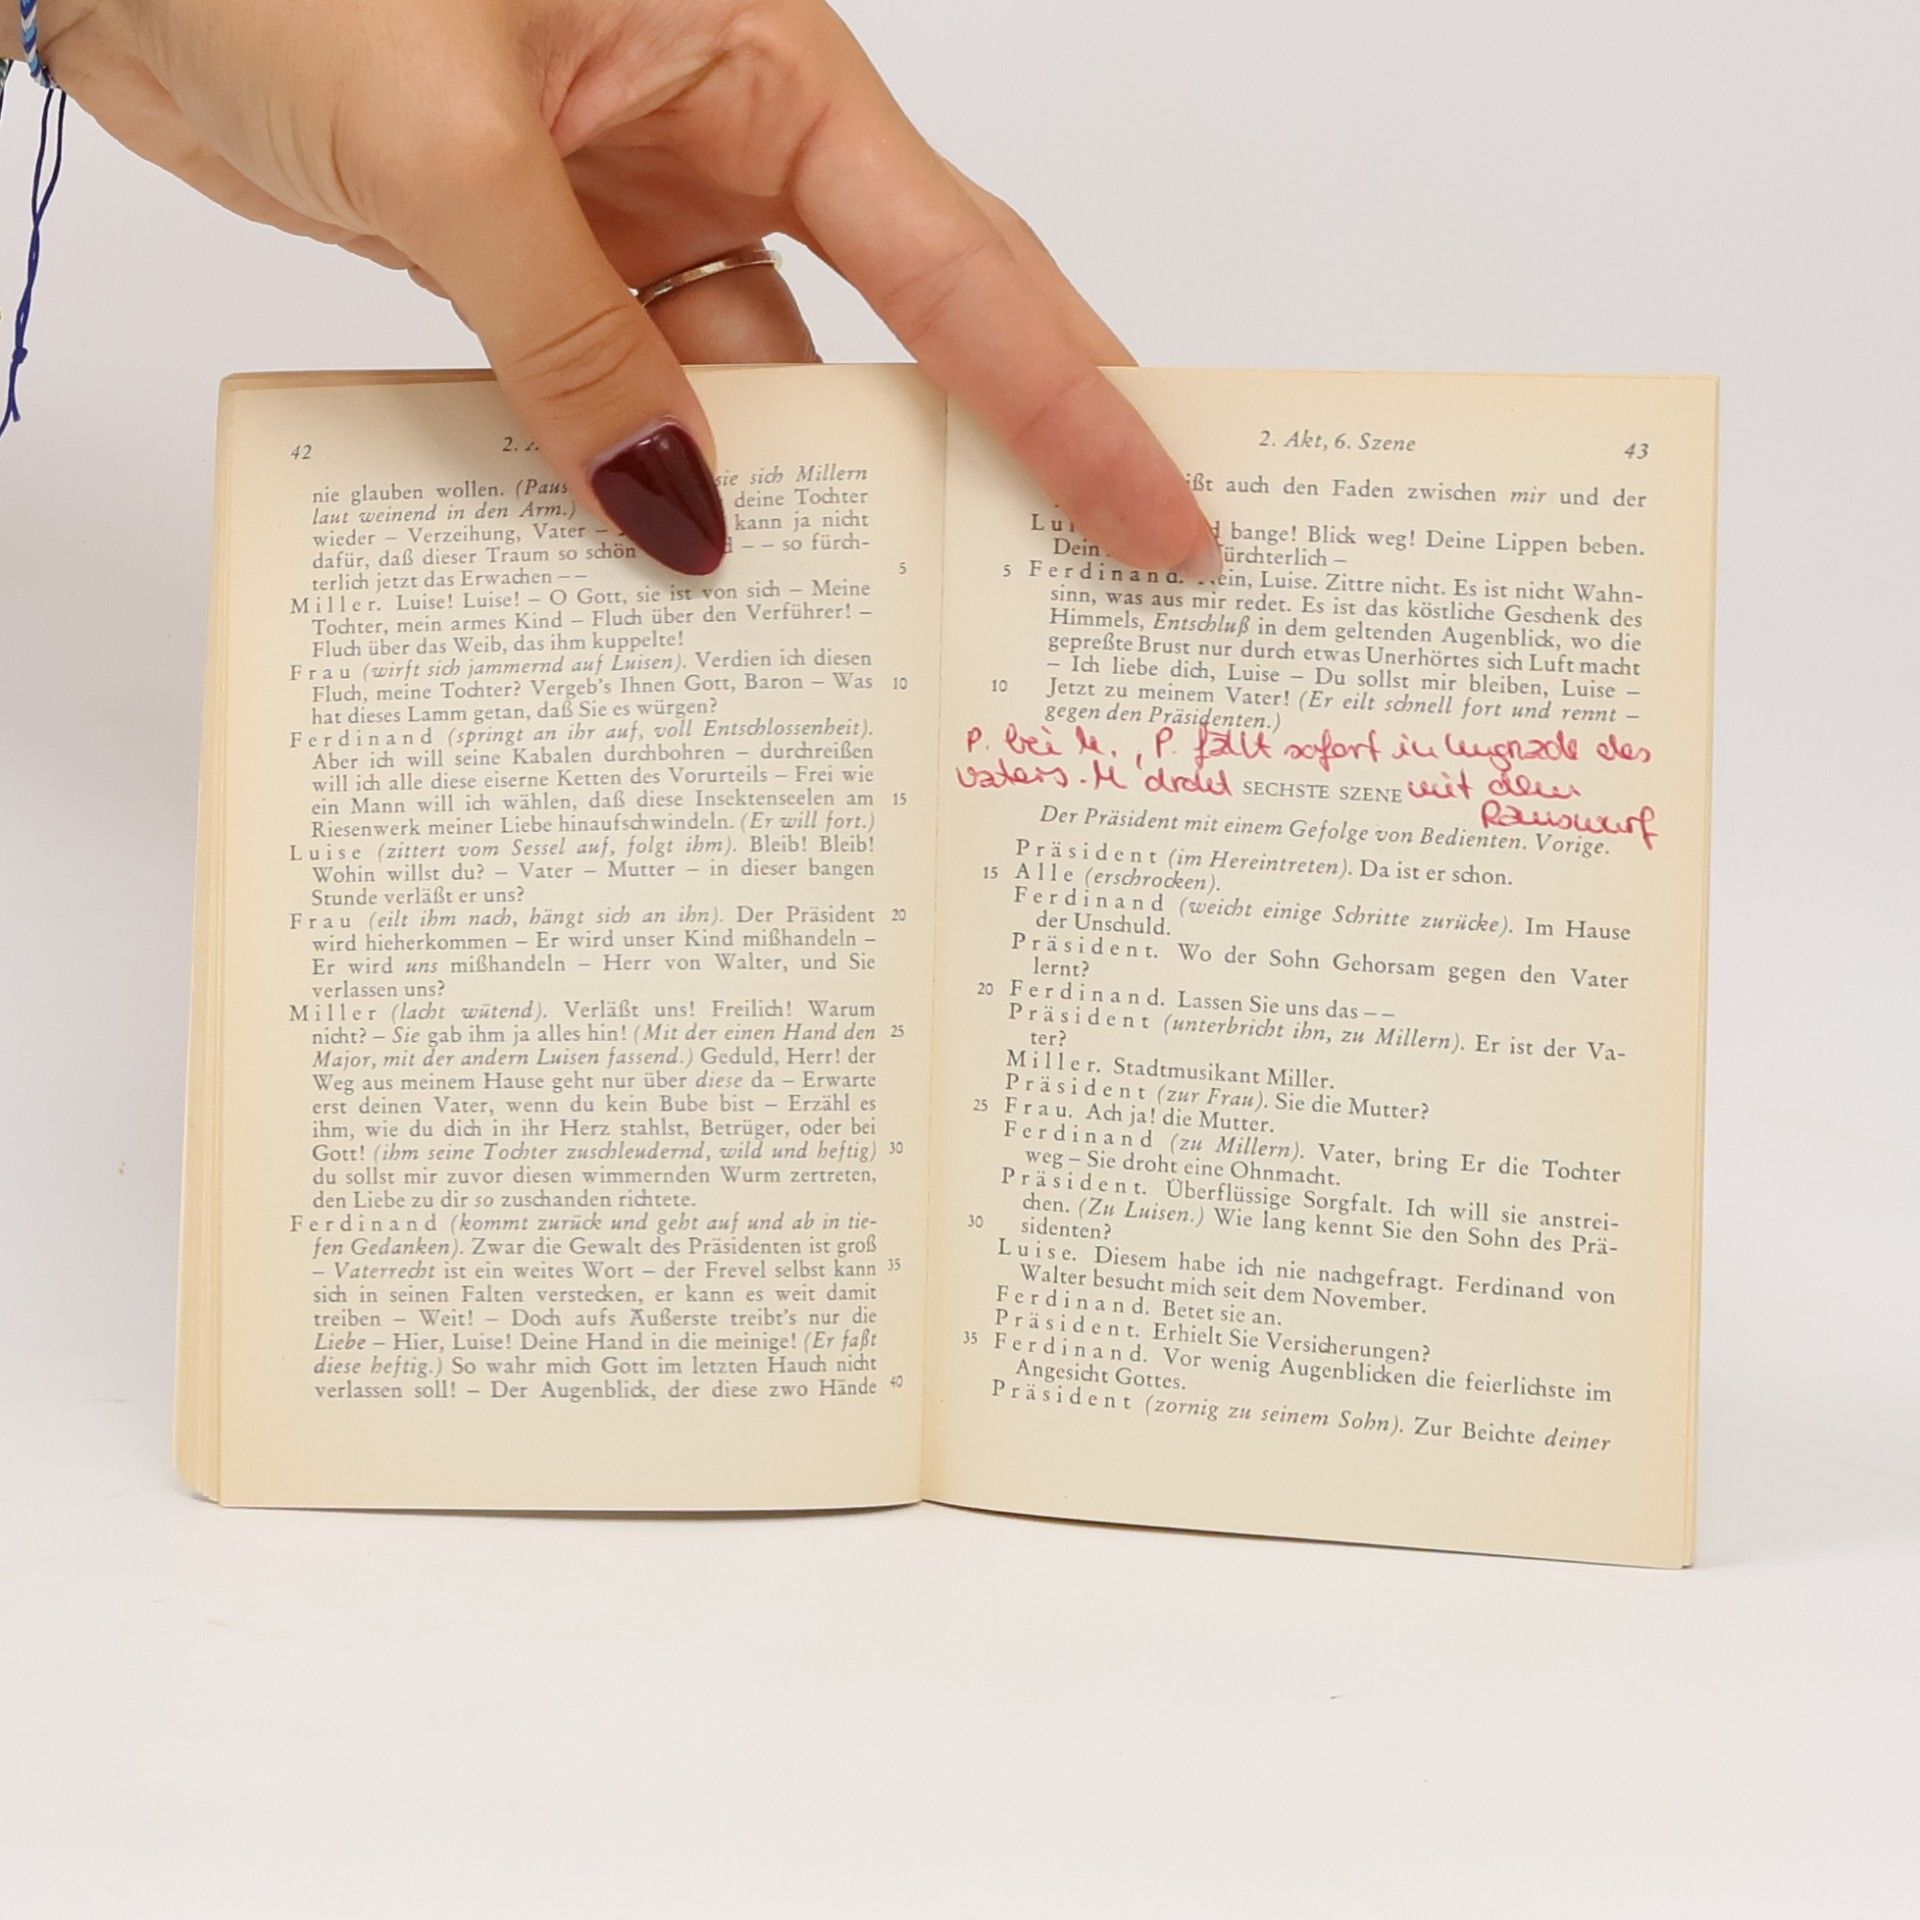 42
2.
nie glauben wollen. (Paus sie sich Millern
laut weinend in den Arm.) deine Tochter
wieder – Verzeihung, Vater – kann ja nicht
dafür, daß dieser Traum so schön – – so fürch-
terlich jetzt das Erwachen – – 5
Miller. Luise! Luise! – O Gott, sie ist von sich – Meine
Tochter, mein armes Kind – Fluch über den Verführer! –
Fluch über das Weib, das ihm kuppelte!
Frau (wirft sich jammernd auf Luisen). Verdien ich diesen
Fluch, meine Tochter? Vergeb's Ihnen Gott, Baron – Was 10
hat dieses Lamm getan, daß Sie es würgen?
Ferdinand (springt an ihr auf, voll Entschlossenheit).
Aber ich will seine Kabalen durchbohren – durchreißen
will ich alle diese eiserne Ketten des Vorurteils – Frei wie
ein Mann will ich wählen, daß diese Insektenseelen am 15
Riesenwerk meiner Liebe hinaufschwindeln. (Er will fort.)
Luise (zittert vom Sessel auf, folgt ihm). Bleib! Bleib!
Wohin willst du? – Vater – Mutter – in dieser bangen
Stunde verläßt er uns?
Frau (eilt ihm nach, hängt sich an ihn). Der Präsident 20
wird hieherkommen – Er wird unser Kind mißhandeln –
Er wird uns mißhandeln – Herr von Walter, und Sie
verlassen uns?
Miller (lacht wütend). Verläßt uns! Freilich! Warum
nicht? – Sie gab ihm ja alles hin! (Mit der einen Hand den 25
Major, mit der andern Luisen fassend.) Geduld, Herr! der
Weg aus meinem Hause geht nur über diese da – Erwarte
erst deinen Vater, wenn du kein Bube bist – Erzähl es
ihm, wie du dich in ihr Herz stahlst, Betrüger, oder bei
Gott! (ihm seine Tochter zuschleudernd, wild und heftig) 30
du sollst mir zuvor diesen wimmernden Wurm zertreten,
den Liebe zu dir so zuschanden richtete.
Ferdinand (kommt zurück und geht auf und ab in tie-
fen Gedanken). Zwar die Gewalt des Präsidenten ist groß
– Vaterrecht ist ein weites Wort – der Frevel selbst kann 35
sich in seinen Falten verstecken, er kann es weit damit
treiben – Weit! – Doch aufs Äußerste treibt's nur die
Liebe – Hier, Luise! Deine Hand in die meinige! (Er faßt
diese heftig.) So wahr mich Gott im letzten Hauch nicht
verlassen soll! – Der Augenblick, der diese zwo Hände 40
2. Akt, 6. Szene 43
auch den Faden zwischen mir und der
bange! Blick weg! Deine Lippen beben.
Dein fürchterlich –
5 Ferdinand. Nein, Luise. Zittre nicht. Es ist nicht Wahn-
sinn, was aus mir redet. Es ist das köstliche Geschenk des
Himmels, Entschluß in dem geltenden Augenblick, wo die
gepreßte Brust nur durch etwas Unerhörtes sich Luft macht
– Ich liebe dich, Luise – Du sollst mir bleiben, Luise –
10 Jetzt zu meinem Vater! (Er eilt schnell fort und rennt –
gegen den Präsidenten.)
P. bei M., P. fällt sofort in Ungnade des
Vaters. M droht mit dem
Rauswurf
SECHSTE SZENE
Der Präsident mit einem Gefolge von Bedienten. Vorige.
Präsident (im Hereintreten). Da ist er schon.
15 Alle (erschrocken).
Ferdinand (weicht einige Schritte zurücke). Im Hause
der Unschuld.
Präsident. Wo der Sohn Gehorsam gegen den Vater
lernt?
20 Ferdinand. Lassen Sie uns das – –
Präsident (unterbricht ihn, zu Millern). Er ist der Va-
ter?
Miller. Stadtmusikant Miller.
Präsident (zur Frau). Sie die Mutter?
25 Frau. Ach ja! die Mutter.
Ferdinand (zu Millern). Vater, bring Er die Tochter
weg – Sie droht eine Ohnmacht.
Präsident. Überflüssige Sorgfalt. Ich will sie anstrei-
chen. (Zu Luisen.) Wie lang kennt Sie den Sohn des Prä-
30 sidenten?
Luise. Diesem habe ich nie nachgefragt. Ferdinand von
Walter besucht mich seit dem November.
Ferdinand. Betet sie an.
Präsident. Erhielt Sie Versicherungen?
35 Ferdinand. Vor wenig Augenblicken die feierlichste im
Angesicht Gottes.
Präsident (zornig zu seinem Sohn). Zur Beichte deiner